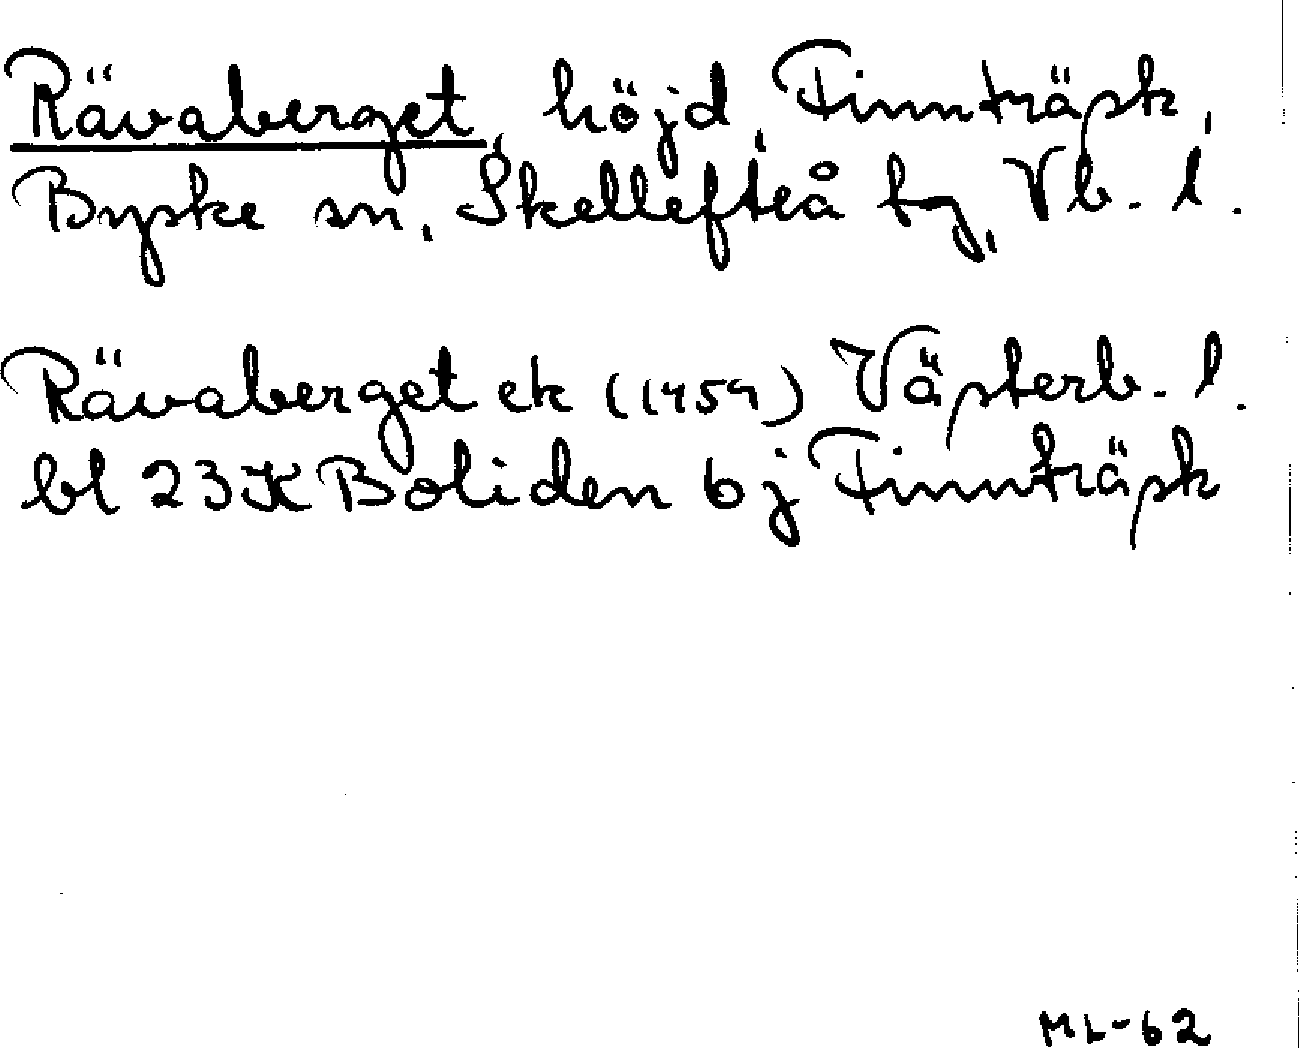 Rävaberget, höjd, Finnträsk,
Byske sn, Skellefteå tg, Vb. l.
Rävaberget ek (1959) Västerb. l.
bl 23K Boliden 6j Finnträsk
ML-62